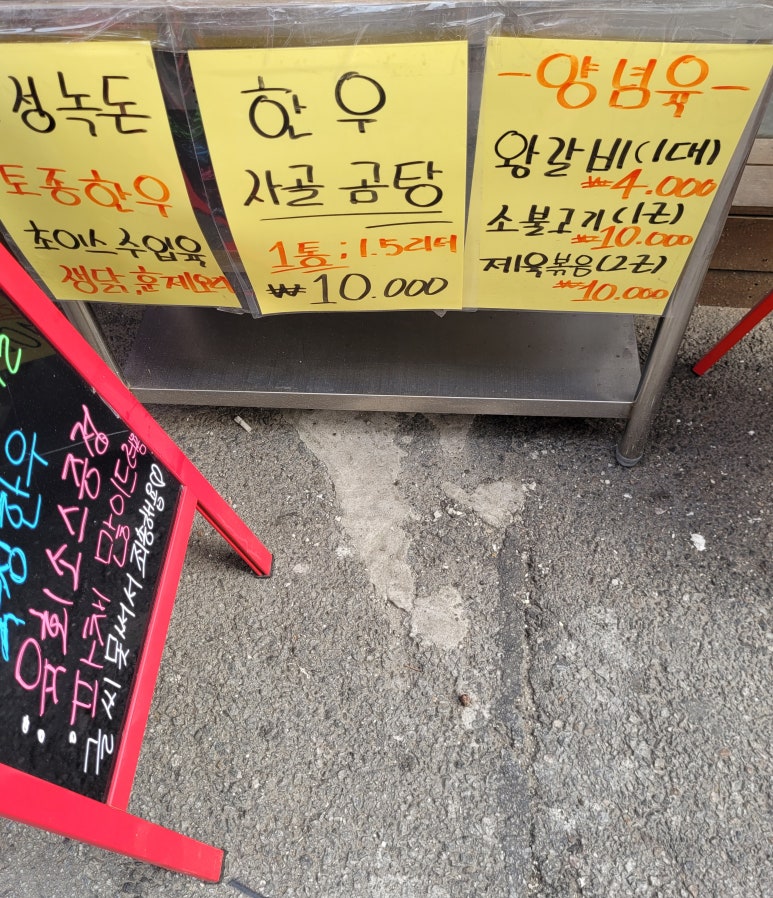 청녹돈
토종한우
초이스수입육
생닭,훈제오리
한우
사골 곰탕
1통; 1.5리터
₩10.000
-양념육-
왕갈비(1대)
₩4.000
소불고기(1근)
₩10.000
제육볶음(2근)
₩10.000
우삼겹
용회소스증정
파채 많이드려용
글씨못써서 죄송해용♡